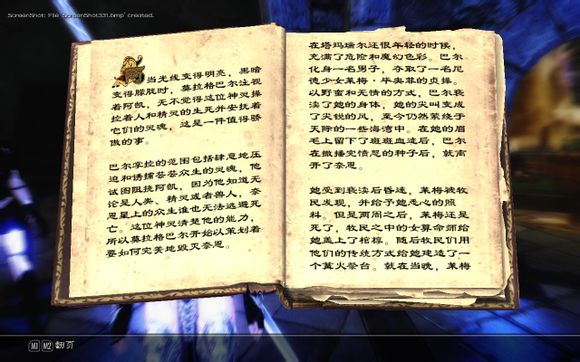 ScreenShot: File 'ScreenShot331.bmp' created.
当光线变得明亮，黑暗
变得朦胧时，莫拉格巴尔注视
着阿凯，无不觉得这位神灵操
控着人和精灵的生死并安抚着
它们的灵魂，这是一件值得骄
傲的事。
巴尔掌控的范围包括肆意地压
迫和诱捕芸芸众生的灵魂，他
试图阻挠阿凯，因为他知道无
论是人类、精灵或者兽人，奈
恩星上的众生谁也无法逃避死
亡。这位神灵清楚他的能力，
所以莫拉格巴尔开始以策划着
要如何完美地毁灭奈恩。
在塔玛瑞尔还很年轻的时候，
充满了危险和魔幻色彩。巴尔
化身一名男子，夺取了一名尼
德少女莱梅·毕奥菲的贞操。
以野蛮和无情的方式，巴尔亵
渎了她的身体，她的尖叫变成
了尖锐的风，至今仍然萦绕于
天际的一些海湾中。在她的眉
毛上留下了斑斑血迹后，巴尔
在撒播完愤怒的种子后，就离
开了奈恩。
她受到亵渎后昏迷，莱梅被牧
民发现，并给予她悉心的照
料。但是两周之后，莱梅还是
死了，牧民之中的女算命师给
她盖上了棺椁。随后牧民们用
他们的传统方式给她建造了一
个篝火祭台。就在当晚，莱梅
M1 M2 翻页